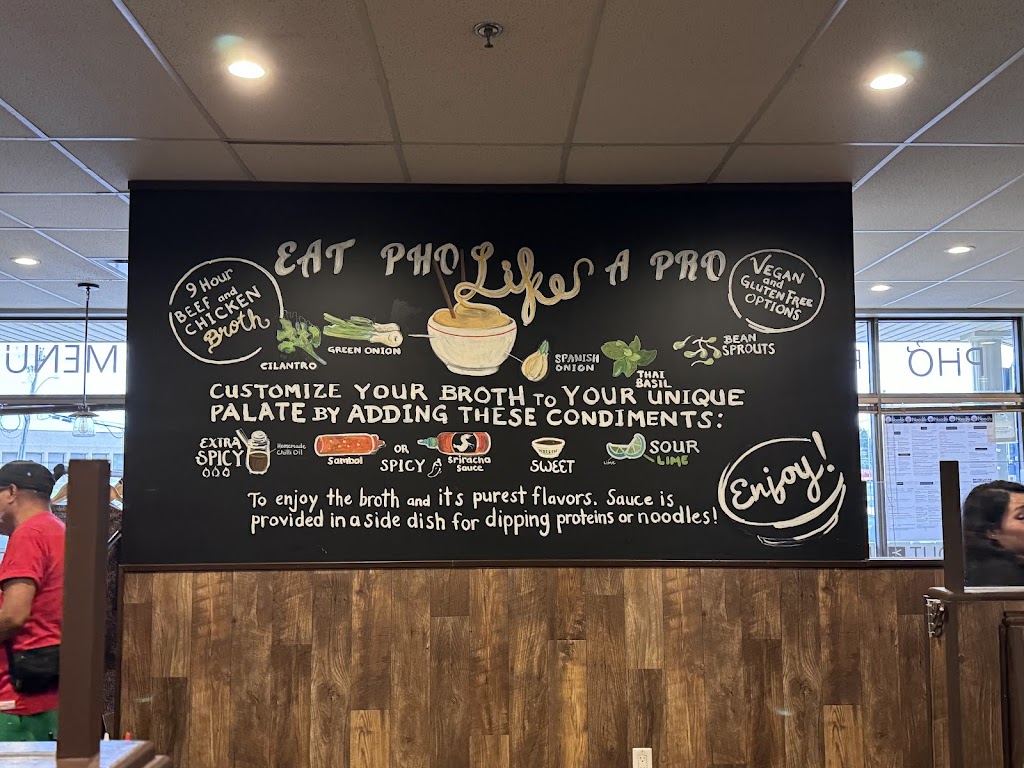 EAT PHO Like A PRO
9 HOUR
BEEF and
CHICKEN
Broth
VEGAN
and
GLUTEN FREE
OPTIONS
CILANTRO
GREEN ONION
SPANISH
ONION
THAI
BASIL
BEAN
SPROUTS
CUSTOMIZE YOUR BROTH TO YOUR UNIQUE
PALATE BY ADDING THESE CONDIMENTS:
EXTRA
SPICY
Homemade
Chilli Oil
Sambal
OR
SPICY
Sriracha
Sauce
SWEET
Lime
SOUR
LIME
Enjoy!
To enjoy the broth and it's purest flavors. Sauce is
provided in a side dish for dipping proteins or noodles!
MENU
PHỞ